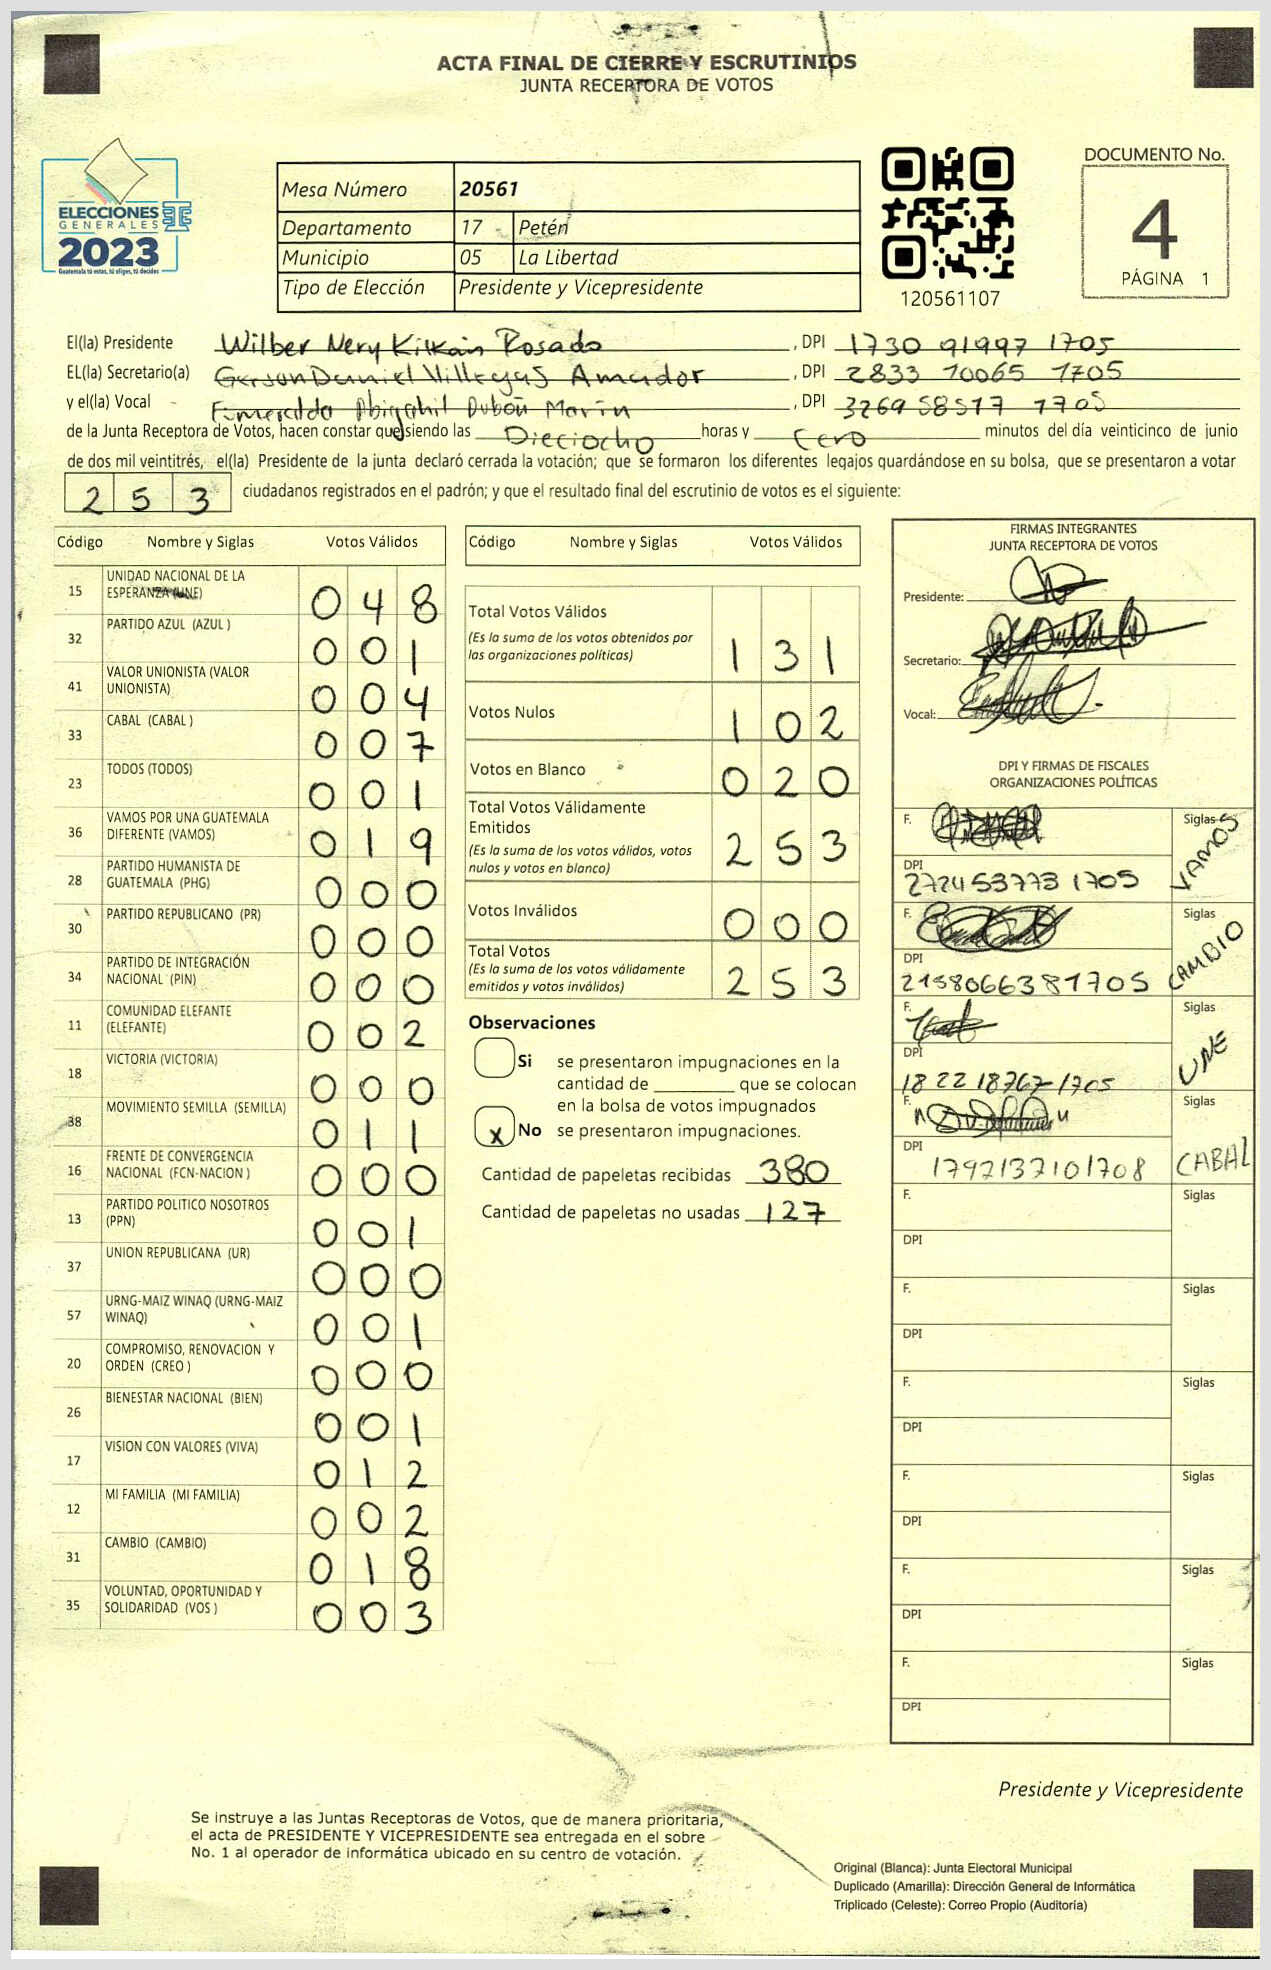 ACTA FINAL DE CIERRE Y ESCRUTINIOS
JUNTA RECEPTORA DE VOTOS
ELECCIONES
GENERALES
2023
Guatemala tú votas, tú eliges, tú decides
Mesa Número 20561
Departamento 17 Petén
Municipio 05 La Libertad
Tipo de Elección Presidente y Vicepresidente
120561107
DOCUMENTO No.
4
PÁGINA 1
El(la) Presidente Wilber Nery Kilkán Rosado, DPI 1730 91997 1705
EL(la) Secretario(a) Gerson Daniel Villegas Amador, DPI 2833 10065 1705
y el(la) Vocal Esmeralda Abigahil Dubón Marín, DPI 3269 58517 1705
de la Junta Receptora de Votos, hacen constar que siendo las Dieciocho horas y Cero minutos del día veinticinco de junio
de dos mil veintitrés, el(la) Presidente de la junta declaró cerrada la votación; que se formaron los diferentes legajos guardándose en su bolsa, que se presentaron a votar
253 ciudadanos registrados en el padrón; y que el resultado final del escrutinio de votos es el siguiente:
Código Nombre y Siglas Votos Válidos
15 UNIDAD NACIONAL DE LA ESPERANZA (UNE) 048
32 PARTIDO AZUL (AZUL ) 001
41 VALOR UNIONISTA (VALOR UNIONISTA) 004
33 CABAL (CABAL ) 007
23 TODOS (TODOS) 001
36 VAMOS POR UNA GUATEMALA DIFERENTE (VAMOS) 019
28 PARTIDO HUMANISTA DE GUATEMALA (PHG) 000
30 PARTIDO REPUBLICANO (PR) 000
34 PARTIDO DE INTEGRACIÓN NACIONAL (PIN) 000
11 COMUNIDAD ELEFANTE (ELEFANTE) 002
18 VICTORIA (VICTORIA) 000
38 MOVIMIENTO SEMILLA (SEMILLA) 011
16 FRENTE DE CONVERGENCIA NACIONAL (FCN-NACION ) 000
13 PARTIDO POLITICO NOSOTROS (PPN) 001
37 UNION REPUBLICANA (UR) 000
57 URNG-MAIZ WINAQ (URNG-MAIZ WINAQ) 001
20 COMPROMISO, RENOVACION Y ORDEN (CREO ) 000
26 BIENESTAR NACIONAL (BIEN) 001
17 VISION CON VALORES (VIVA) 012
12 MI FAMILIA (MI FAMILIA) 002
31 CAMBIO (CAMBIO) 018
35 VOLUNTAD, OPORTUNIDAD Y SOLIDARIDAD (VOS ) 003
Código Nombre y Siglas Votos Válidos
Total Votos Válidos 131
(Es la suma de los votos obtenidos por
las organizaciones políticas)
Votos Nulos 102
Votos en Blanco 020
Total Votos Válidamente
Emitidos 253
(Es la suma de los votos válidos, votos
nulos y votos en blanco)
Votos Inválidos 000
Total Votos 253
(Es la suma de los votos válidamente
emitidos y votos inválidos)
Observaciones
Si se presentaron impugnaciones en la
cantidad de ________ que se colocan
en la bolsa de votos impugnados
x No se presentaron impugnaciones.
Cantidad de papeletas recibidas 380
Cantidad de papeletas no usadas 127
FIRMAS INTEGRANTES
JUNTA RECEPTORA DE VOTOS
Presidente:
Secretario:
Vocal:
DPI Y FIRMAS DE FISCALES
ORGANIZACIONES POLÍTICAS
F. Siglas VAMOS
DPI 2724537731705
F. Siglas CAMBIO
DPI 2158066381705
F. Siglas UNE
DPI 1822 18767 1705
F. Siglas CABAL
DPI 1792137101708
F. Siglas
DPI
F. Siglas
DPI
F. Siglas
DPI
F. Siglas
DPI
F. Siglas
DPI
F. Siglas
DPI
Presidente y Vicepresidente
Se instruye a las Juntas Receptoras de Votos, que de manera prioritaria,
el acta de PRESIDENTE Y VICEPRESIDENTE sea entregada en el sobre
No. 1 al operador de informática ubicado en su centro de votación.
Original (Blanca): Junta Electoral Municipal
Duplicado (Amarilla): Dirección General de Informática
Triplicado (Celeste): Correo Propio (Auditoría)